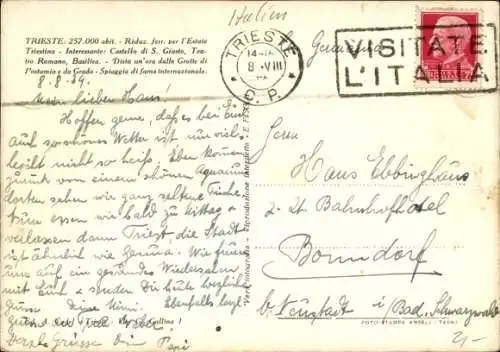 Italien
TRIESTE: 257.000 abit. - Riduz. ferr. per l'Estate
Triestina - Interessante: Castello di S. Giusto, Tea-
tro Romano, Basilica. - Dista un'ora dalle Grotte di
Postumia e da Grado - Spiaggia di fama internazionale.
TRIESTE
8 VIII
C. P.
VISITATE
L'ITALIA
8.8.39.
Mein lieber Hans!
Hoffen gerne, daß es bei Euch
auch so schönes Wetter ist
nicht so heiß. Eben kommen
zurück von einem schönen Aquarium
dorten sehen wir ganz seltene Fische.
Nun essen wir bald zu Mittag &
verlassen dann Triest, die Stadt
ist ähnlich wie Genua. Wir freuen
uns auf ein gesundes Wiedersehen
mit Euch & senden Dir heute herzliche
Grüsse Deine Mimi. Ebenfalls herzl.
Grüsse
Herrn
Hans Ebbinghaus
z. Zt. Bahnhofhotel
Bonndorf
b. Neustadt i/Bad. Schwarzwald
Vera fotografia - Riproduzione interdetta
herzl. Grüsse dein Papi